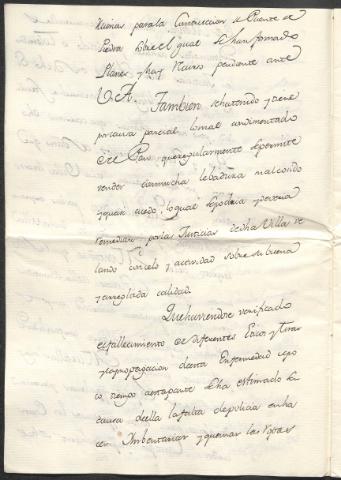 para la Construccion de Puente de
Piedra sobre el qual se han formado
Planes y hay recurso pendiente ante
V. A. Tambien se ha tenido y tiene
por causa parcial lo mal condimentado
de el Pan que regularmente se permite
vender con mucha lebadura mal cosido
y quasi acedo, lo qual se podria y deveria
remediar por la Justicias de dha Villa ce
lando con celo y actividad sobre su buena
y arreglada calidad.
Que haviendose verificado
el fallecimiento de diferentes
y la propagacion de esta Enfermedad a po
co tiempo a esta parte se ha estimado se
causa de ella la falta de policia en ha
cer Imbentariar y quemar las Ropas